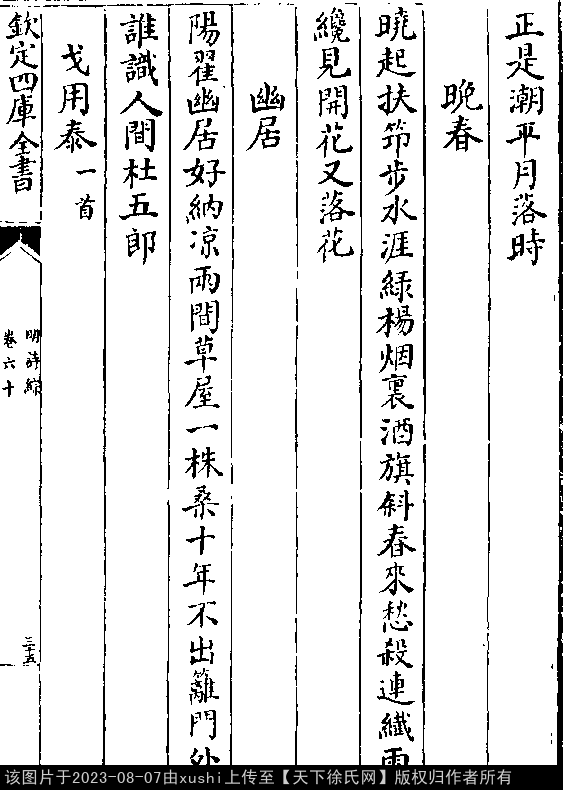 正是潮平月落時
晚春
曉起扶笻步水涯綠楊烟裏酒旗斜春來愁殺連纖雨
纔見開花又落花
幽居
陽翟幽居好納凉兩間草屋一株桑十年不出籬門外
誰識人間杜五郎
戈用泰一首
欽定四庫全書
明詩綜
卷六十
三十五
该图片于2023-08-07由xushi上传至【天下徐氏网】版权归作者所有